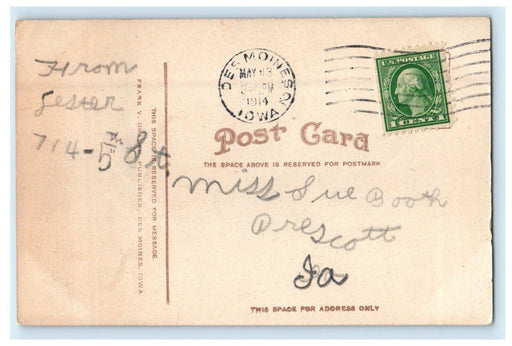 From
Lester
714-5th St.
THIS SPACE RESERVED FOR MESSAGE
FRANK V. PUBLISHER, DES MOINES, IOWA
DES MOINES
MAY
PM
1914
IOWA
U.S. POSTAGE
1 CENT 1
Post Card
THE SPACE ABOVE IS RESERVED FOR POSTMARK
Miss Sue Booth
Prescott
Ia
THIS SPACE FOR ADDRESS ONLY